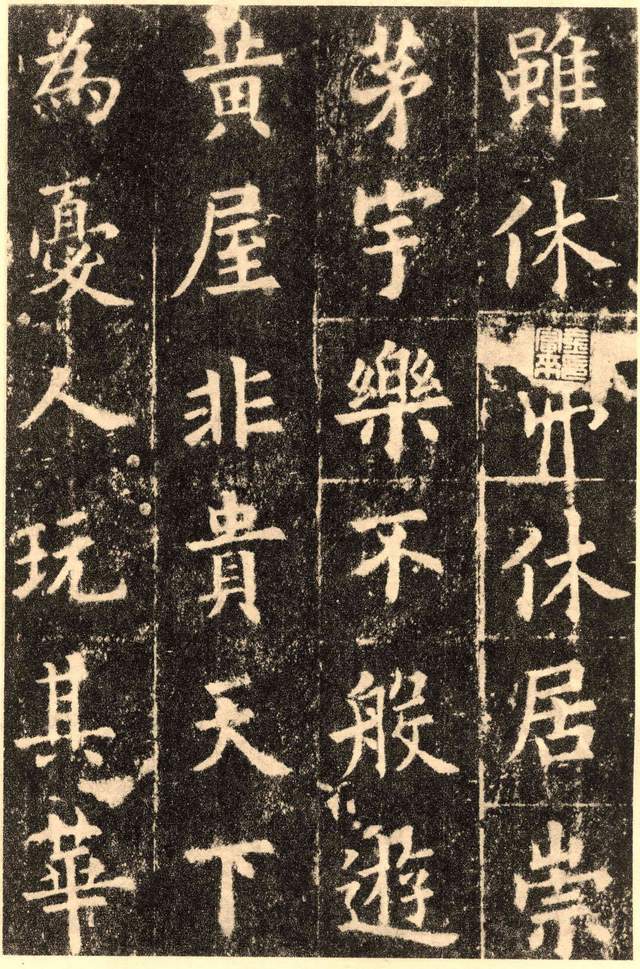 雖休休居崇
茅宇樂不般遊
黄屋非貴天下
為憂人玩其華